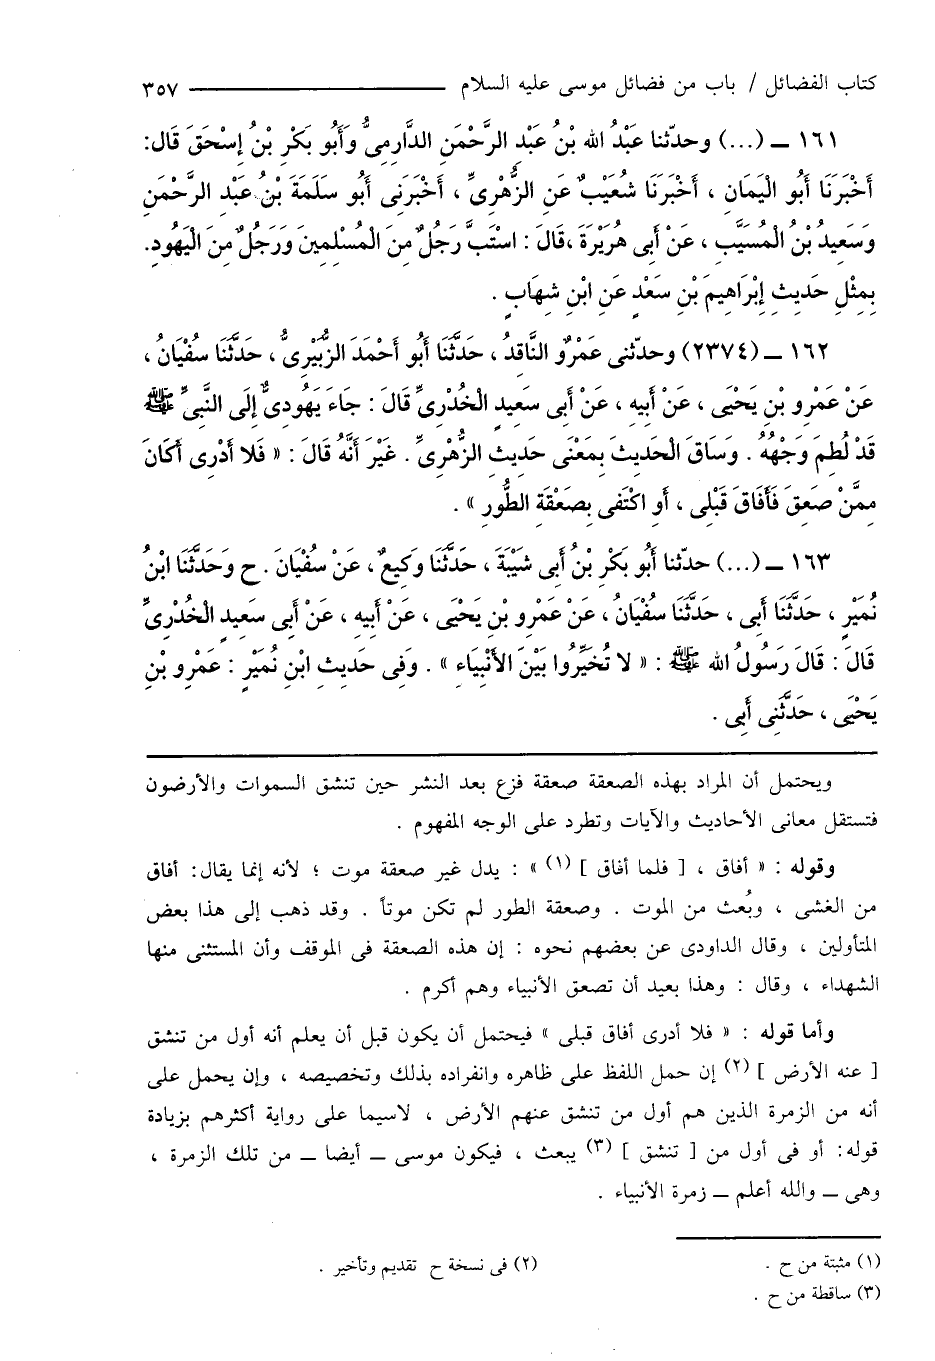 كتاب الفضائل / باب من فضائل موسى عليه السلام ـــــــ ٣٥٧
١٦١ ــ (...) وحدّثنا عَبْدُ الله بْنُ عَبْدِ الرَّحْمَنِ الدَّارِمِىُّ وَأَبُو بَكْرِ بْنُ إِسْحَقَ قَالَ:
أَخْبَرَنَا أَبُو الْيَمَانِ ، أَخْبَرَنَا شُعَيْبٌ عَنِ الزُّهْرِىِّ ، أَخْبَرَنِى أَبُو سَلَمَةَ بْنُ عَبْدِ الرَّحْمَنِ
وَسَعِيدُ بْنُ الْمُسَيَّبِ ، عَنْ أَبِى هُرَيْرَةَ ،قَالَ : اسْتَبَّ رَجُلٌ مِنَ الْمُسْلِمِينَ وَرَجُلٌ مِنَ الْيَهُودِ.
بِمِثْلِ حَدِيثِ إِبْرَاهِيمَ بْنِ سَعْدٍ عَنِ ابْنِ شِهَابٍ .
١٦٢ ــ (٢٣٧٤) وحدّثنى عَمْرٌو النَّاقِدُ ، حَدَّثَنَا أَبُو أَحْمَدَ الزُّبَيْرِىُّ ، حَدَّثَنَا سُفْيَانُ ،
عَنْ عَمْرِو بْنِ يَحْيَى ، عَنْ أَبِيهِ ، عَنْ أَبِى سَعِيدٍ الْخُدْرِىِّ قَالَ : جَاءَ يَهُودِىٌّ إِلَى النَّبِىِّ ﷺ
قَدْ لُطِمَ وَجْهُهُ . وَسَاقَ الْحَدِيثَ بِمَعْنَى حَدِيثِ الزُّهْرِىِّ . غَيْرَ أَنَّهُ قَالَ : « فَلا أَدْرِى أَكَانَ
مِمَّنْ صَعِقَ فَأَفَاقَ قَبْلِى ، أَوِ اكْتَفَى بِصَعْقَةِ الطُّورِ » .
١٦٣ ــ (...) حدّثنا أَبُو بَكْرِ بْنُ أَبِى شَيْبَةَ ، حَدَّثَنَا وَكِيعٌ ، عَنْ سُفْيَانَ . ح وَحَدَّثَنَا ابْنُ
نُمَيْرٍ ، حَدَّثَنَا أَبِى ، حَدَّثَنَا سُفْيَانُ ، عَنْ عَمْرِو بْنِ يَحْيَى ، عَنْ أَبِيهِ ، عَنْ أَبِى سَعِيدٍ الْخُدْرِىِّ
قَالَ : قَالَ رَسُولُ الله ﷺ : « لا تُخَيِّرُوا بَيْنَ الأَنْبِيَاءِ » . وَفِى حَدِيثِ ابْنِ نُمَيْرٍ : عَمْرِو بْنِ
يَحْيَى ، حَدَّثَنِى أَبِى .
ويحتمل أن المراد بهذه الصعقة صعقة فزع بعد النشر حين تنشق السموات والأرضون
فتستقل معانى الأحاديث والآيات وتطرد على الوجه المفهوم .
وقوله : « أفاق ، [ فلما أفاق ] (١) » : يدل غير صعقة موت ؛ لأنه إنما يقال: أفاق
من الغشى ، وبُعث من الموت . وصعقة الطور لم تكن موتاً . وقد ذهب إلى هذا بعض
المتأولين ، وقال الداودى عن بعضهم نحوه : إن هذه الصعقة فى الموقف وأن المستثنى منها
الشهداء ، وقال : وهذا بعيد أن تصعق الأنبياء وهم أكرم .
وأما قوله : « فلا أدرى أفاق قبلى » فيحتمل أن يكون قبل أن يعلم أنه أول من تنشق
[ عنه الأرض ] (٢) إن حمل اللفظ على ظاهره وانفراده بذلك وتخصيصه ، وإن يحمل على
أنه من الزمرة الذين هم أول من تنشق عنهم الأرض ، لاسيما على رواية أكثرهم بزيادة
قوله: أو فى أول من [ تنشق ] (٣) يبعث ، فيكون موسى ــ أيضا ــ من تلك الزمرة ،
وهى ــ والله أعلم ــ زمرة الأنبياء .
(١) مثبتة من ح . (٢) فى نسخة ح تقديم وتأخير .
(٣) ساقطة من ح .